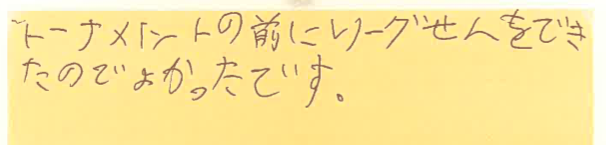 トーナメントの前にリーグせんをでき
たのでよかったです。